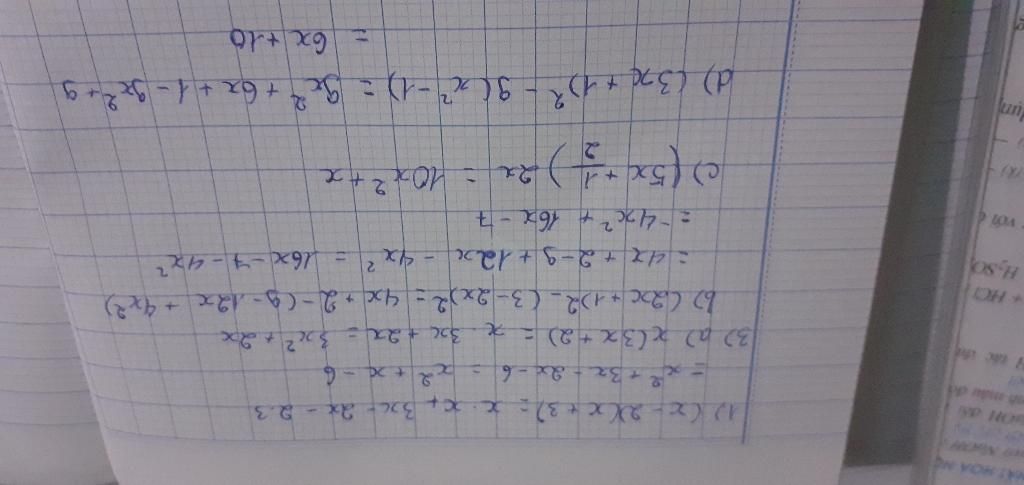 1) (x - 2)(x + 3) = x . x + 3x - 2x - 2.3
= x² + 3x - 2x - 6 = x² + x - 6
3) a) x(3x + 2) = x . 3x + 2x = 3x² + 2x
b) (2x + 1)2 - (3 - 2x)2 = 4x + 2 - (9 - 12x + 4x2)
= 4x + 2 - 9 + 12x - 4x² = 16x - 7 - 4x²
= -4x² + 16x - 7
c) (5x + 1/2) 2x = 10x² + x
d) (3x + 1)² - 9(x² - 1) = 9x² + 6x + 1 - 9x² + 9
= 6x + 10
H₂SO
+ HCl